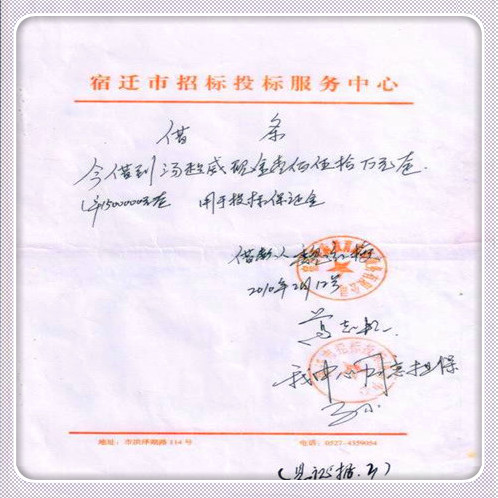 宿迁市招标投标服务中心
借 条
今借到汤政威现金壹佰伍拾万元整.
(¥1500000元整 用于投标保证金
借款人
2010年2月12号
我中心同意担保
地址：市洪泽湖路114号 电话：0527-4359054